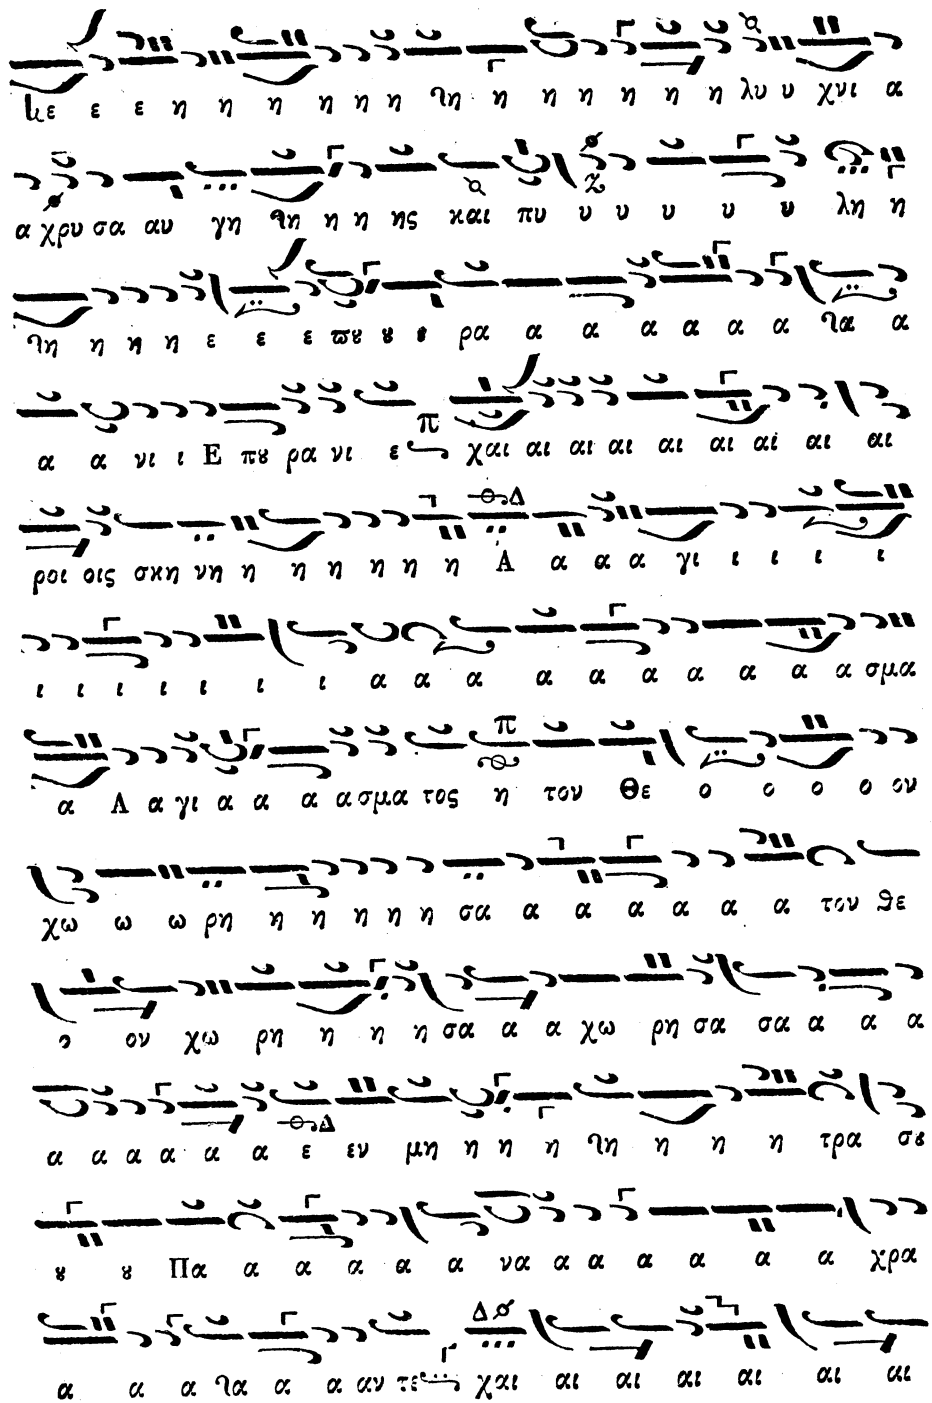 κε ε ε η η η η η η τη η η η η η η λυ υ χνι α
α χρυ σα αυ γη τη η η ης και πυ υ υ υ υ υ λη η
τη η η η ε ε ε πȣ ȣ ȣ ρα α α α α α α τα α
α α νι ι Ε πȣ ρα νι ε χαι αι αι αι αι αι αί αι αι
ροι οις σκη νη η η η η η η Α α α α γι ι ι ι ι
ι ι ι ι ι ι ι α α α α α α α α α α σμα
α Α α γι α α α α σμα τος η τον Θε ο ο ο ο ον
χω ω ω ρη η η η η η σα α α α α α α τον Θε
ο ον χω ρη η η η σα α α χω ρη σα σα α α α
α α α α α α ε εν μη η η η τη η η η τρα σȣ
ȣ ȣ Πα α α α α α να α α α α α α χρα
α α α τα α α αν τε χαι αι αι αι αι αι αι